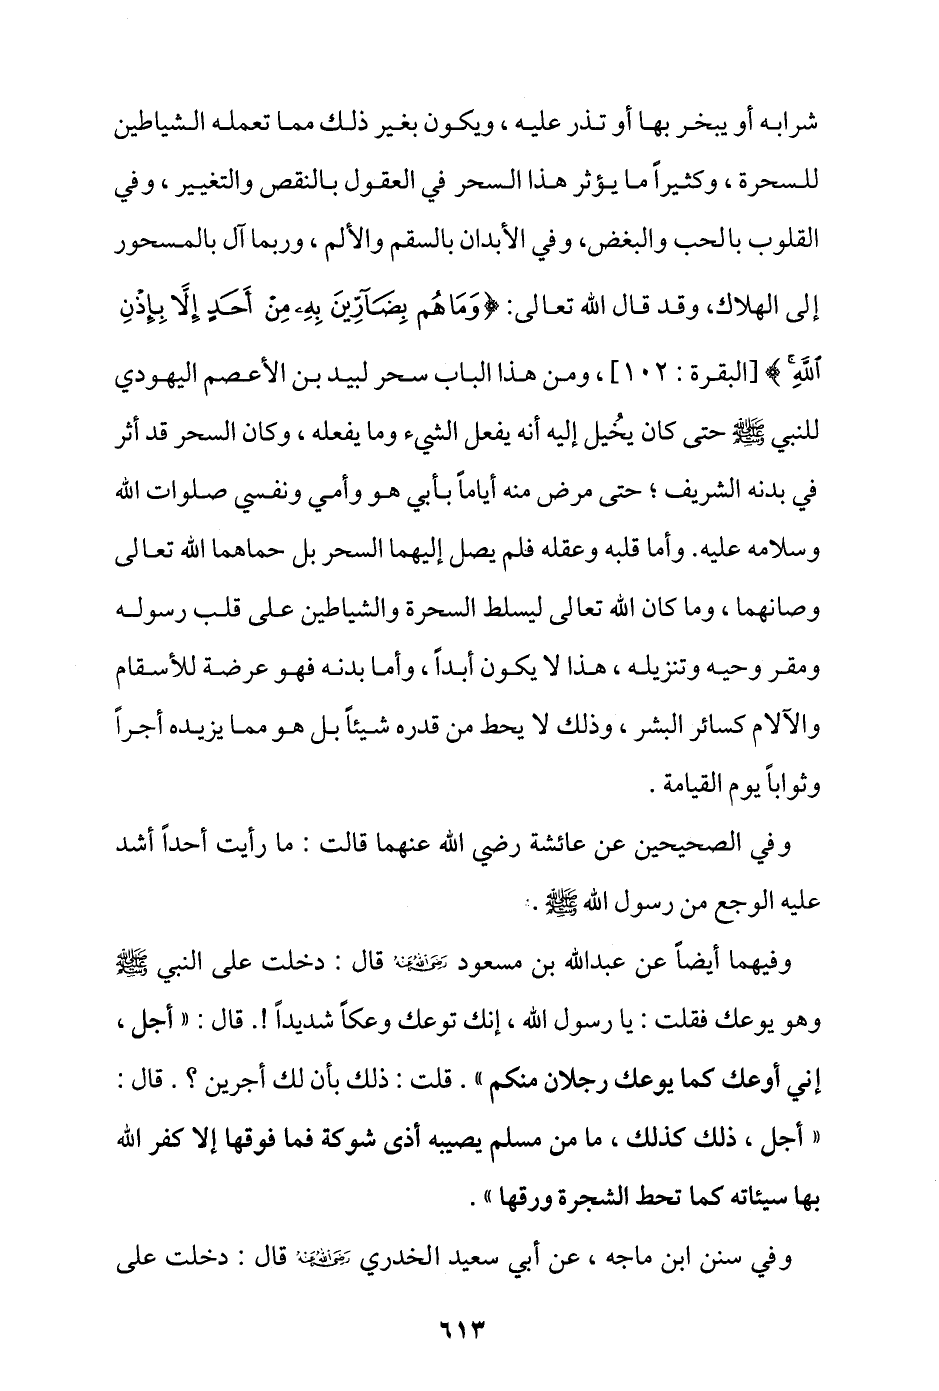 شرابه أو يبخر بها أو تذر عليه ، ويكون بغير ذلك مما تعمله الشياطين
للسحرة ، وكثيراً ما يؤثر هذا السحر في العقول بالنقص والتغيير ، وفي
القلوب بالحب والبغض، وفي الأبدان بالسقم والألم ، وربما آل بالمسحور
إلى الهلاك، وقد قال الله تعالى: ﴿وَمَا هُم بِضَآرِّينَ بِهِۦ مِنْ أَحَدٍ إِلَّا بِإِذْنِ
ٱللَّهِۚ﴾ [البقرة : ١٠٢] ، ومن هذا الباب سحر لبيد بن الأعصم اليهودي
للنبي ﷺ حتى كان يُخيل إليه أنه يفعل الشيء وما يفعله ، وكان السحر قد أثر
في بدنه الشريف ؛ حتى مرض منه أياماً بأبي هو وأمي ونفسي صلوات الله
وسلامه عليه. وأما قلبه وعقله فلم يصل إليهما السحر بل حماهما الله تعالى
وصانهما ، وما كان الله تعالى ليسلط السحرة والشياطين على قلب رسوله
ومقر وحيه وتنزيله ، هذا لا يكون أبداً ، وأما بدنه فهو عرضة للأسقام
والآلام كسائر البشر ، وذلك لا يحط من قدره شيئاً بل هو مما يزيده أجراً
وثواباً يوم القيامة .
وفي الصحيحين عن عائشة رضي الله عنهما قالت : ما رأيت أحداً أشد
عليه الوجع من رسول الله ﷺ .
وفيهما أيضاً عن عبدالله بن مسعود رضي الله عنه قال : دخلت على النبي ﷺ
وهو يوعك فقلت : يا رسول الله ، إنك توعك وعكاً شديداً !. قال : « أجل ،
إني أوعك كما يوعك رجلان منكم » . قلت : ذلك بأن لك أجرين ؟ . قال :
« أجل ، ذلك كذلك ، ما من مسلم يصيبه أذى شوكة فما فوقها إلا كفر الله
بها سيئاته كما تحط الشجرة ورقها » .
وفي سنن ابن ماجه ، عن أبي سعيد الخدري رضي الله عنه قال : دخلت على
٦١٣